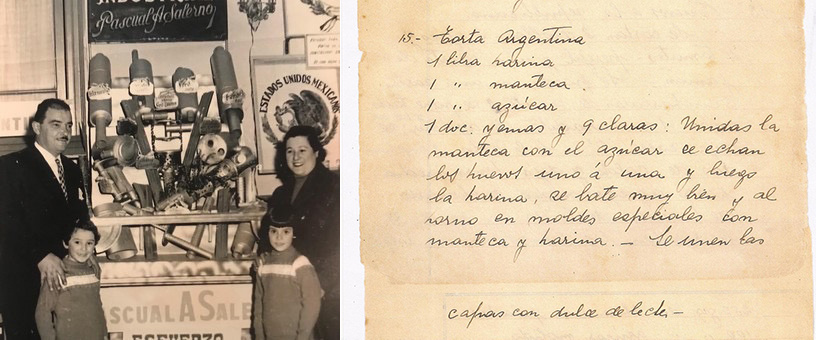 Pascual A. Salerno
ESTADOS UNIDOS MEXICANOS
PASCUAL A SALE
ESFUERZO
15.- Torta Argentina
1 libra harina
1 " manteca.
1 " azúcar
1 doc. yemas y 9 claras: Unidas la
manteca con el azúcar se echan
los huevos uno á una y luego
la harina, se bate muy bien y al
horno en moldes especiales con
manteca y harina. — Se unen las
capas con dulce de leche —